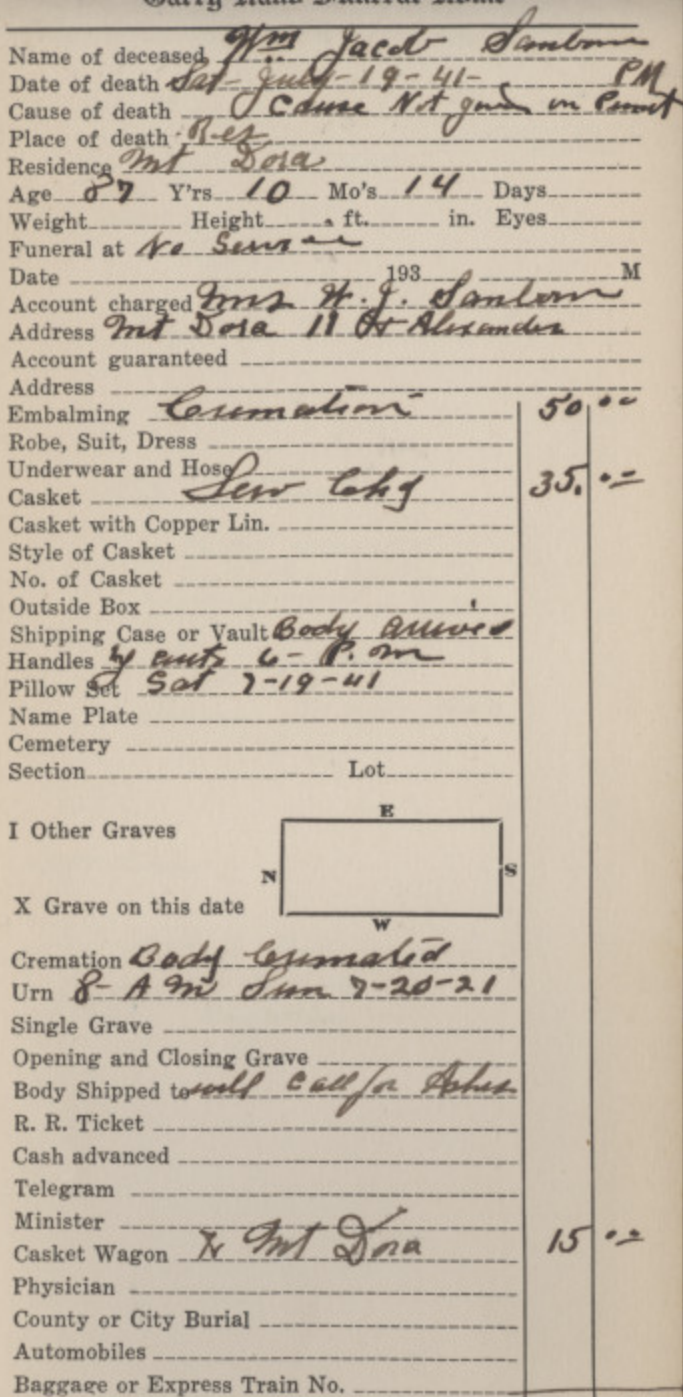 Name of deceased Wm Jacob Sanborn
Date of death Sat- July-19-41- PM
Cause of death Cause Not given on Permit
Place of death Res
Residence Mt Dora
Age 87 Y'rs 10 Mo's 14 Days
Weight Height ft. in. Eyes
Funeral at No Service
Date 193 M
Account charged Mrs W. J. Sanborn
Address Mt Dora 11 Alexander
Account guaranteed
Address
Embalming Cremation 50 00
Robe, Suit, Dress
Underwear and Hose
Casket Serv Chg 35. 00
Casket with Copper Lin.
Style of Casket
No. of Casket
Outside Box
Shipping Case or Vault Body arrived
Handles by auto 6- P.m
Pillow Set Sat 7-19-41
Name Plate
Cemetery
Section Lot
E
I Other Graves
N S
X Grave on this date
W
Cremation Body Cremated
Urn 8- A M Sun 7-20-21
Single Grave
Opening and Closing Grave
Body Shipped to will call for Ashes
R. R. Ticket
Cash advanced
Telegram
Minister
Casket Wagon Mt Dora 15 00
Physician
County or City Burial
Automobiles
Baggage or Express Train No.